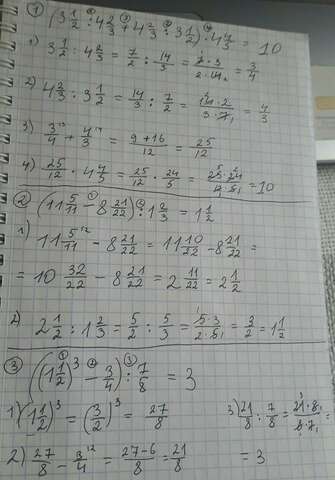 ① (3 1/2 : 4 2/3 + 4 2/3 : 3 1/2) · 4 4/5 = 10
1) 3 1/2 : 4 2/3 = 7/2 : 14/3 = 7·3/2·14 = 3/4
2) 4 2/3 : 3 1/2 = 14/3 : 7/2 = 14·2/3·7 = 4/3
3) 3/4 + 4/3 = 9+16/12 = 25/12
4) 25/12 · 4 4/5 = 25/12 · 24/5 = 25·24/ = 10
② (11 5/11 - 8 21/22) : 1 2/3 = 1 1/2
1) 11 5/11 - 8 21/22 = 11 10/22 - 8 21/22 =
= 10 32/22 - 8 21/22 = 2 11/22 = 2 1/2
2) 2 1/2 : 1 2/3 = 5/2 : 5/3 = 5·3/2·5 = 3/2 = 1 1/2
③ ((1 1/2)³ - 3/4) : 7/8 = 3
1) (1 1/2)³ = (3/2)³ = 27/8
3) 21/8 : 7/8 = 21·8/8·7 =
2) 27/8 - 3/4 = 27-6/8 = 21/8
= 3